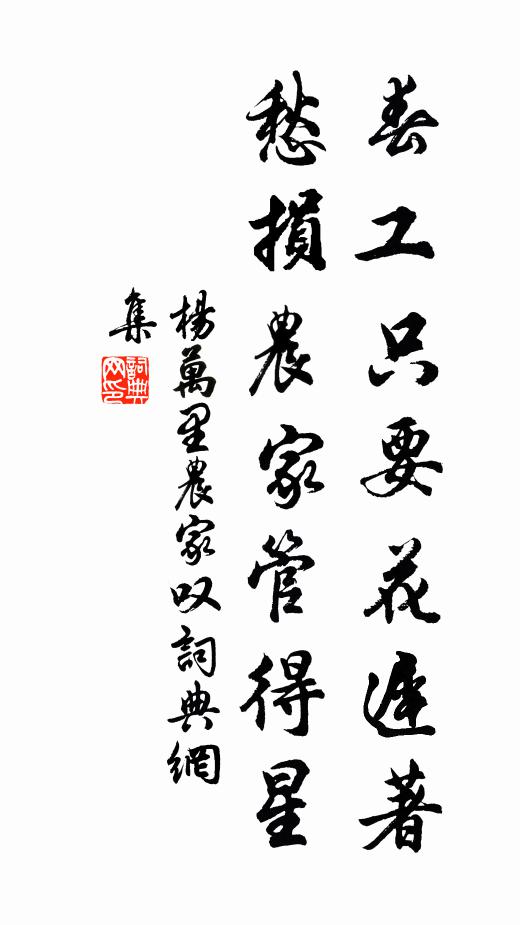 春工只要花遲著
愁損農家管得星
楊萬里農家叹詞典網
集
詞典网印